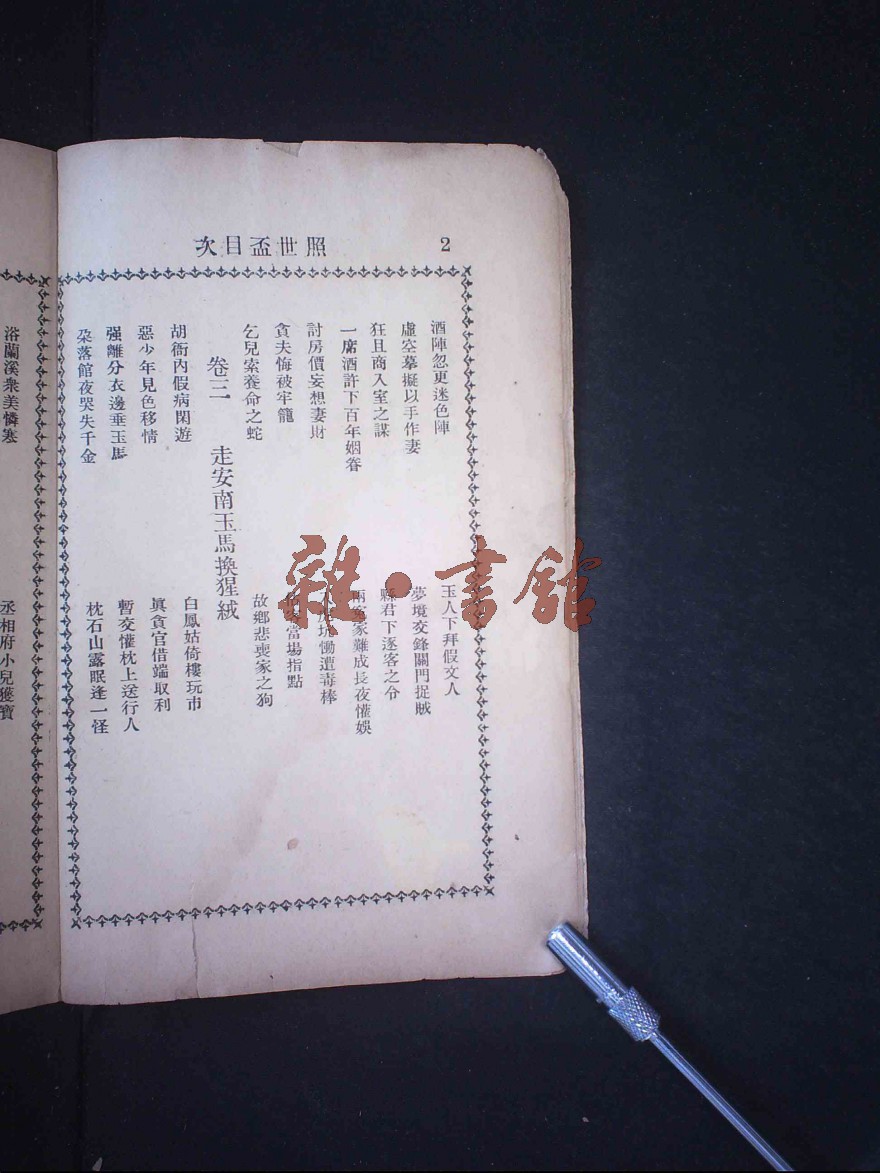 照世盃目次
2
酒陣忽更迷色陣
玉人下拜假文人
虛空摹擬以手作妻
夢境交鋒關門捉賊
狂且商入室之謀
縣君下逐客之令
一席酒許下百年姻眷
兩冤家難成長夜懽娛
討房價妄想妻財
坑慟遭毒棒
貪夫悔被牢籠
當場指點
乞兒索養命之蛇
故鄉悲喪家之狗
卷三 走安南玉馬換猩絨
胡衙內假病閑遊
白鳳姑倚樓玩市
惡少年見色移情
眞貪官借端取利
强離分衣邊垂玉馬
暫交懽枕上送行人
朶落館夜哭失千金
枕石山露眠逢一怪
浴蘭溪衆美憐蹇
丞相府小兒獲寶
雜·書館